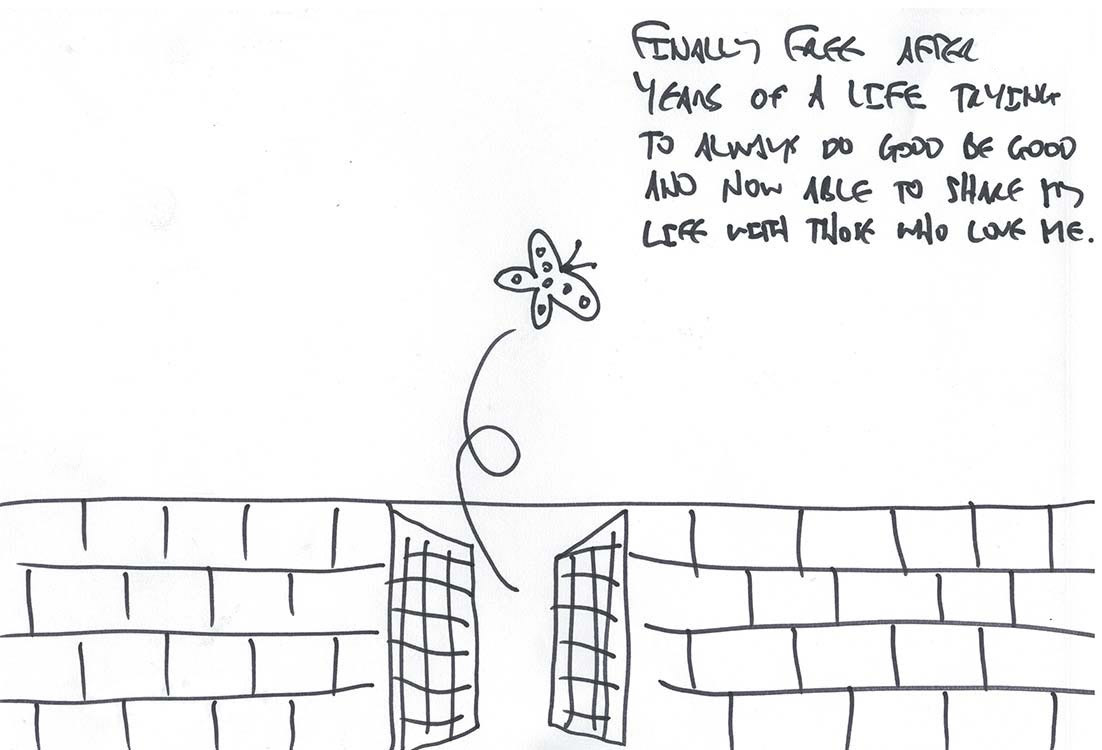 FINALLY FREE AFTER
YEARS OF A LIFE TRYING
TO ALWAYS DO GOOD BE GOOD
AND NOW ABLE TO SHARE MY
LIFE WITH THOSE WHO LOVE ME.